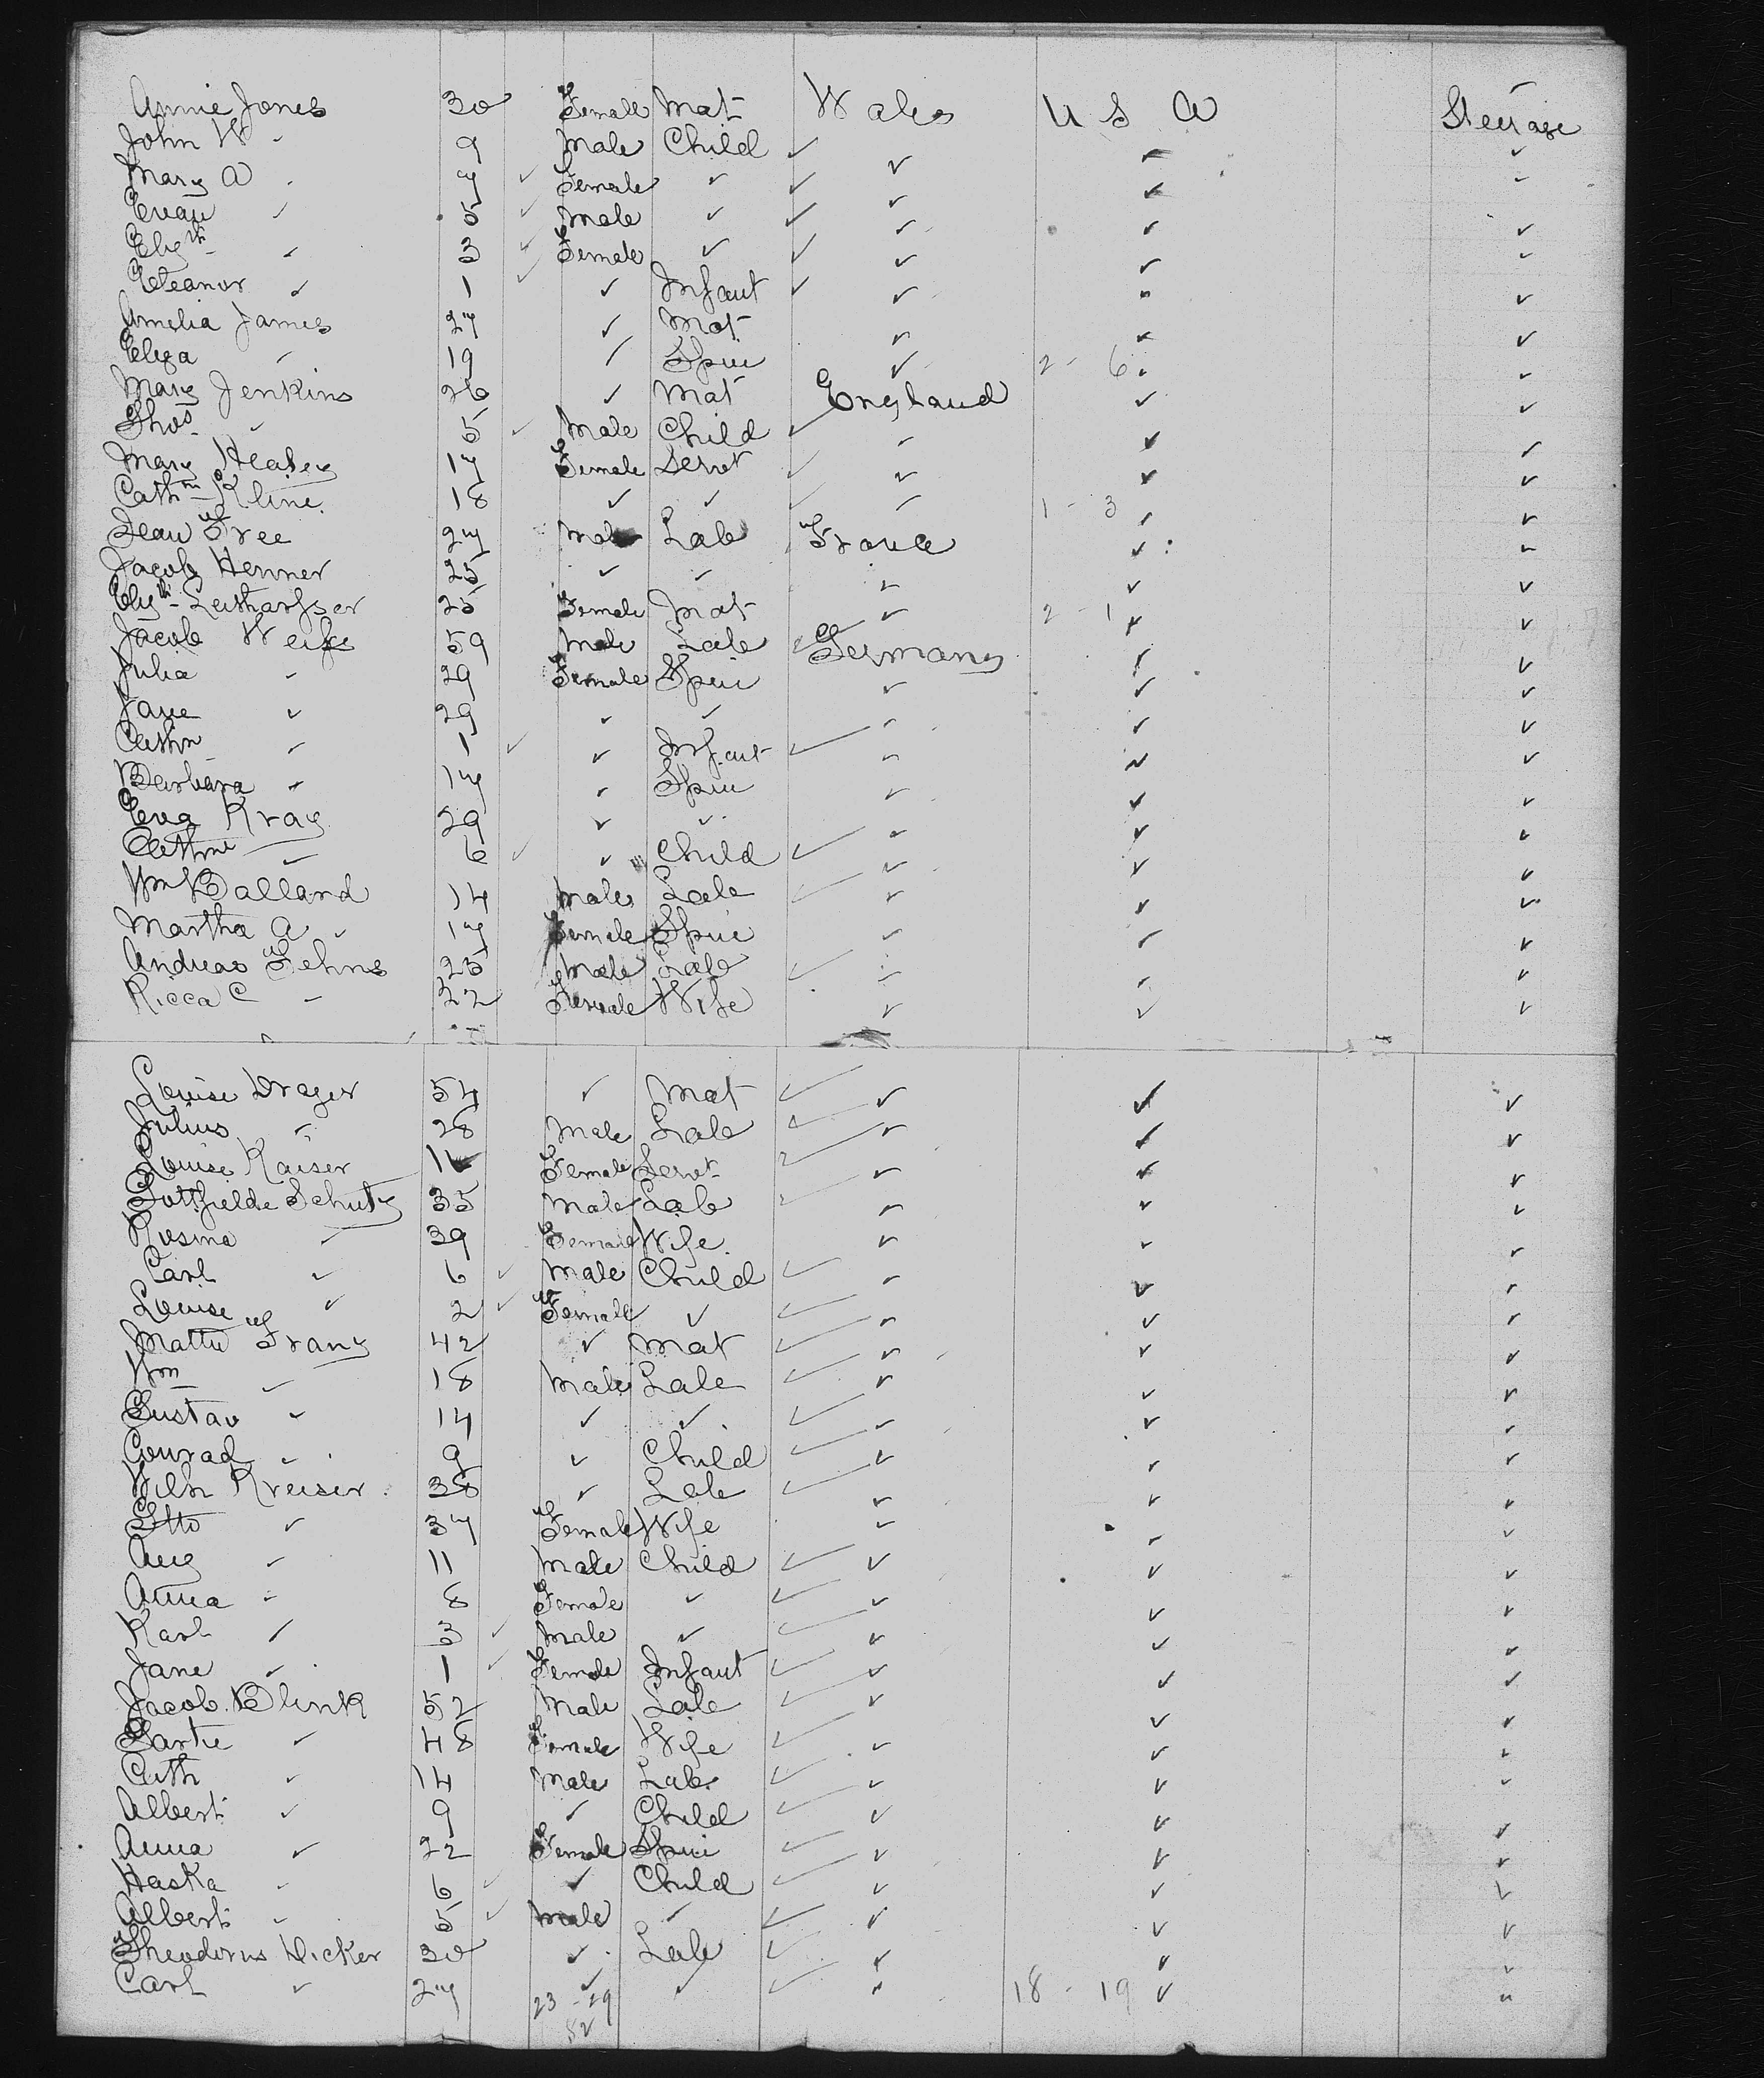 Annie Jones 30 Female Mat Wales U S A Steerage
John W " 9 Male Child ✓ ✓ ✓ ✓
Mary A " 7 ✓ Female ✓ ✓ ✓ ✓ ✓
Evan ✓ 5 ✓ Male ✓ ✓ ✓ ✓ ✓
Elizth ✓ 3 ✓ Female ✓ ✓ ✓ ✓ ✓
Eleanor ✓ 1 ✓ ✓ Infant ✓ ✓ ✓ ✓
Amelia James 27 ✓ Mat ✓ ✓ ✓
Eliza ✓ 19 ✓ Spin ✓ 2 - 6 ✓ ✓
Mary Jenkins 26 ✓ Mat England ✓ ✓
Thos ✓ 5 ✓ Male Child ✓ ✓ ✓ ✓
Mary Healey 17 Female Servt ✓ ✓ ✓ ✓
Cathne Kline 18 ✓ ✓ ✓ ✓ 1 - 3 ✓ ✓
Jean Free 27 Male Lab France ✓ ✓
Jacob Henner 25 ✓ ✓ ✓ ✓ ✓
Elizth 25 Female Mat ✓ 2 - 1 ✓ ✓
Jacob Weiss 59 Male Lab ✓ Germany ✓ ✓
Julia ✓ 29 Female Spin ✓ ✓ ✓
Jane ✓ 29 ✓ ✓ ✓ ✓ ✓
Cathn ✓ 1 ✓ ✓ Infant ✓ ✓ ✓ ✓
Barbara ✓ 17 ✓ Spin ✓ ✓ ✓
Eva Kray 29 ✓ ✓ ✓ ✓ ✓
Cathne ✓ 6 ✓ ✓ Child ✓ ✓ ✓ ✓
Wm Balland 14 Male Lab ✓ ✓ ✓ ✓
Martha A ✓ 17 Female Spin ✓ ✓ ✓
Andreas Fehns 25 Male Lab ✓ ✓ ✓ ✓
Ricca C " 22 Female Wife ✓ ✓ ✓
Louise Drager 54 ✓ Mat ✓ ✓ ✓ ✓
Julius ✓ 28 Male Lab ✓ ✓ ✓ ✓
Louise Kaiser Female Servt ✓ ✓ ✓ ✓
Gottfielde Schutz 35 Male Lab ✓ ✓ ✓ ✓
Rosina ✓ 39 Female Wife ✓ ✓ ✓
Carl ✓ 6 ✓ Male Child ✓ ✓ ✓ ✓
Louise ✓ 2 ✓ Female ✓ ✓ ✓ ✓ ✓
Mattie Franz 42 ✓ Mat ✓ ✓ ✓ ✓
Wm ✓ 18 Male Lab ✓ ✓ ✓ ✓
Gustav ✓ 14 ✓ ✓ ✓ ✓ ✓ ✓
Conrad ✓ 9 ✓ Child ✓ ✓ ✓ ✓
Wilh Kreiser 38 ✓ Lab ✓ ✓ ✓ ✓
Otto ✓ 37 Female Wife ✓ ✓ ✓
Aug ✓ 11 Male Child ✓ ✓ ✓ ✓
Anna ✓ 8 Female ✓ ✓ ✓ ✓ ✓
Karl ✓ 3 ✓ Male ✓ ✓ ✓ ✓ ✓
Jane ✓ 1 ✓ Female Infant ✓ ✓ ✓ ✓
Jacob Blink 52 Male Lab ✓ ✓ ✓ ✓
Gartie ✓ 48 Female Wife ✓ ✓ ✓ ✓
Cath ✓ 14 Male Lab ✓ ✓ ✓ ✓
Albert ✓ 9 ✓ Child ✓ ✓ ✓ ✓
Anna ✓ 22 Female Spin ✓ ✓ ✓ ✓
Haska ✓ 6 ✓ ✓ Child ✓ ✓ ✓ ✓
Albert ✓ 5 ✓ Male ✓ ✓ ✓ ✓ ✓
Theodorus Hicker 30 ✓ Lab ✓ ✓ ✓ ✓
Carl ✓ 27 ✓ ✓ ✓ ✓ 18 - 19 ✓ ✓
23 - 29
52